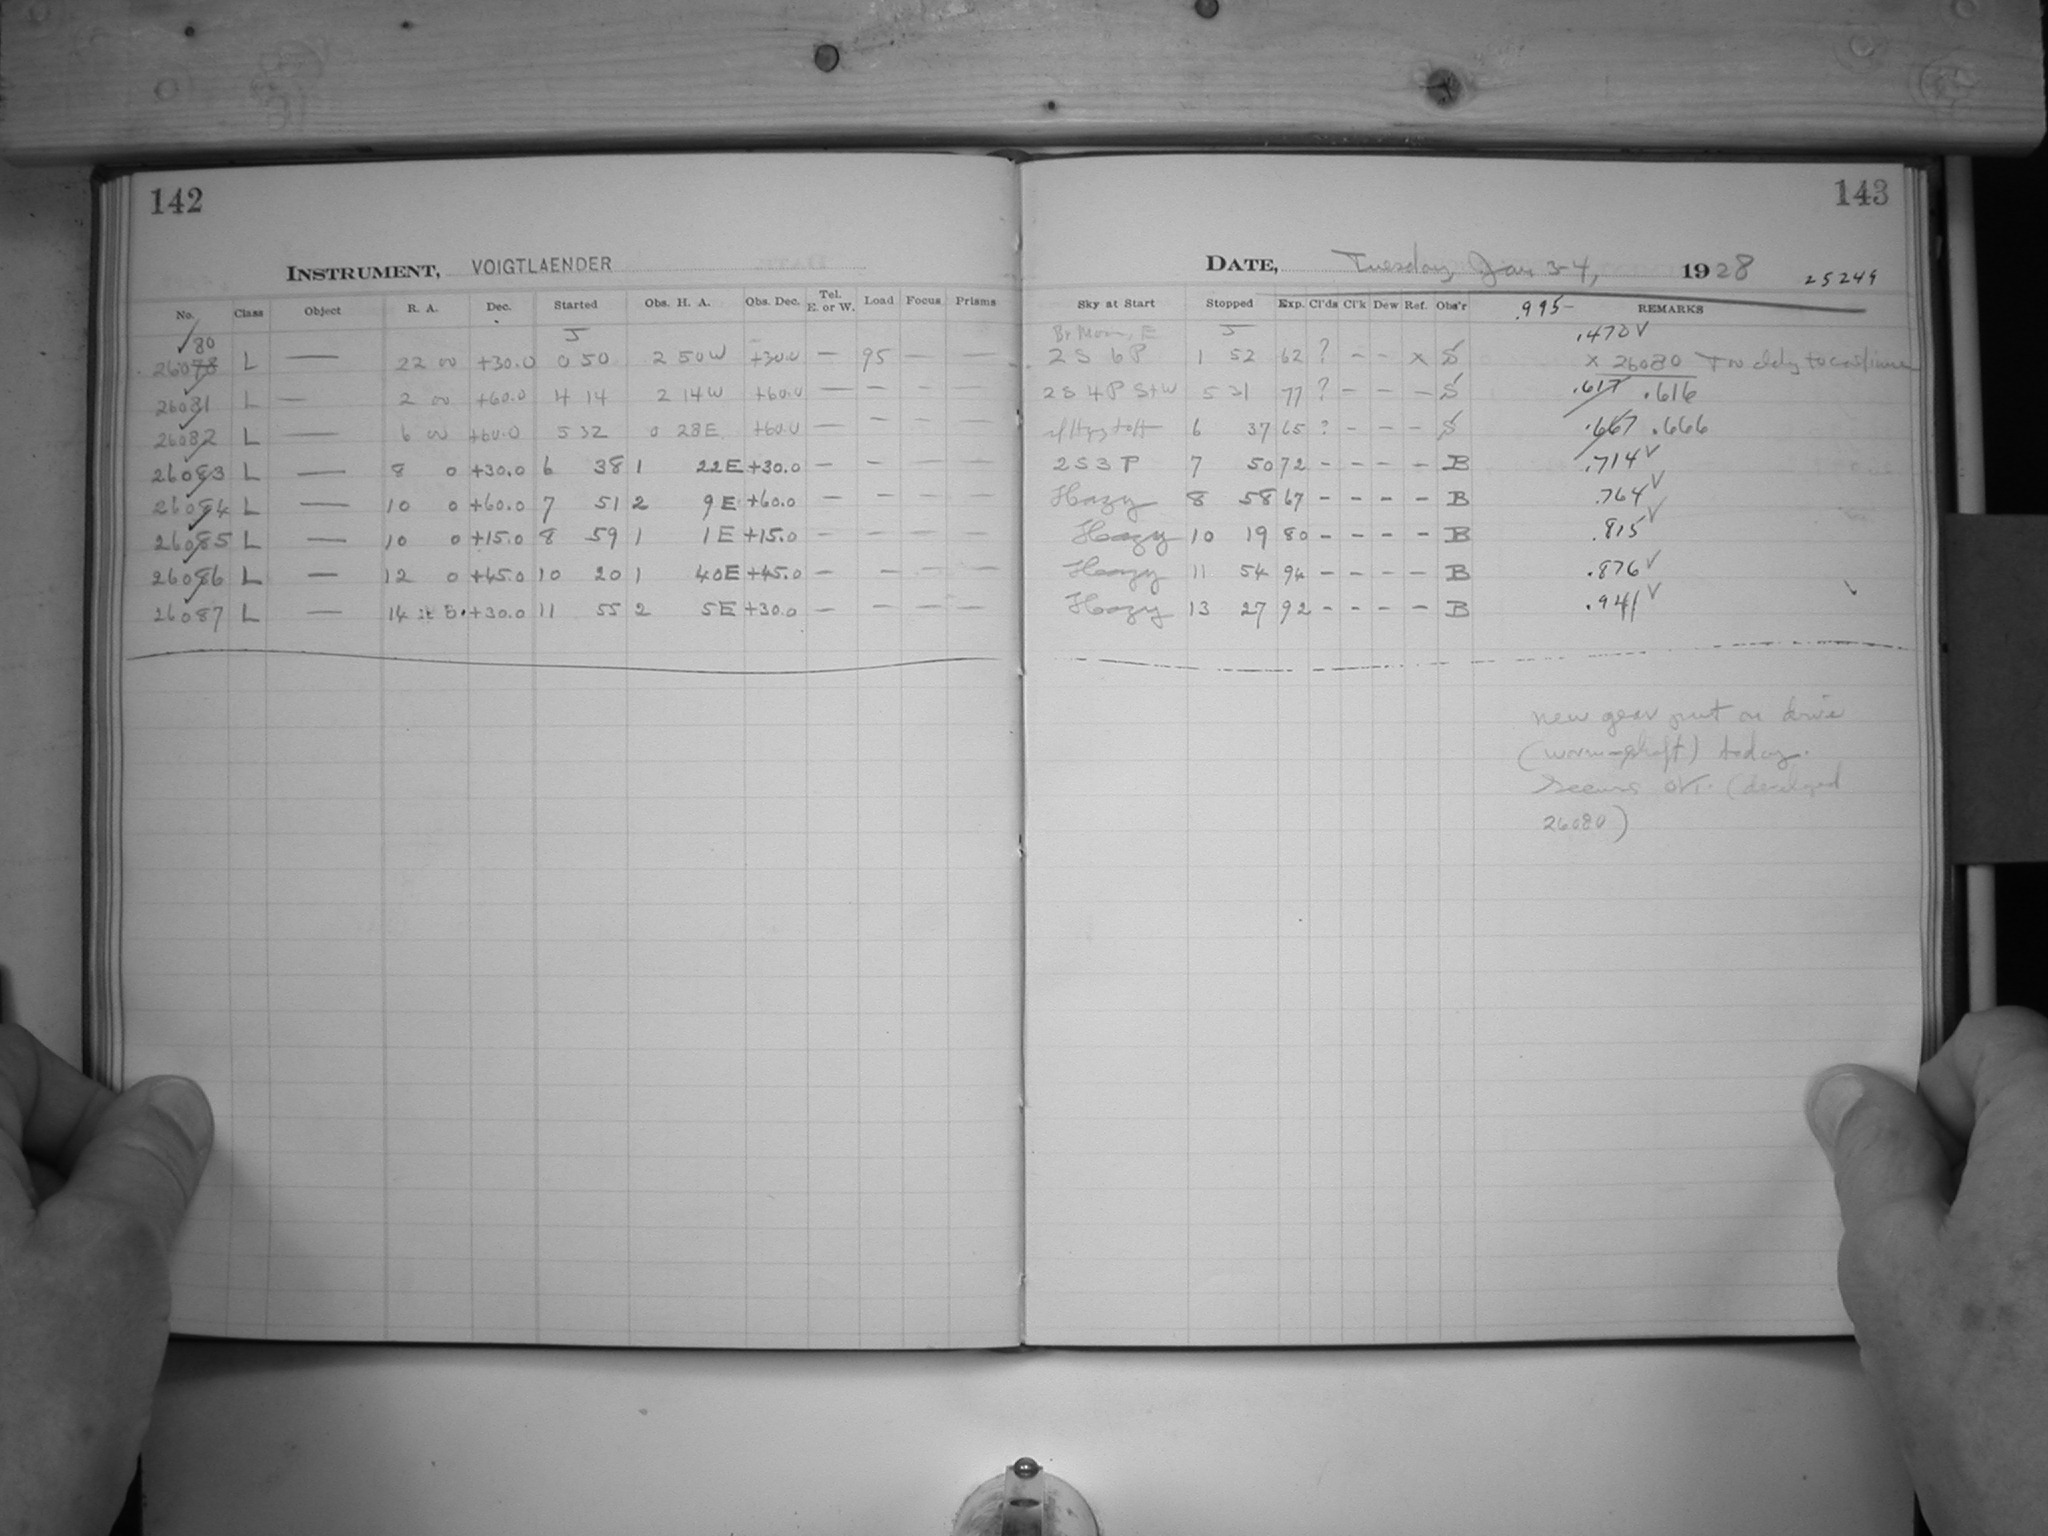 142
INSTRUMENT, VOIGTLAENDER
No. Class Object R. A. Dec. Started Obs. H. A. Obs. Dec. Tel. E. or W. Load Focus Prisms
80
26078 L — 22 00 +30.0 0 50 2 50W +30.0 — 95 —
26081 L — 2 00 +60.0 4 14 2 14W +60.0 — — — —
26082 L — 6 00 +60.0 5 32 0 28E +60.0 — — — —
26083 L — 8 0 +30.0 6 38 1 22E +30.0 — — — —
26084 L — 10 0 +60.0 7 51 2 9E +60.0 — — — —
26085 L — 10 0 +15.0 8 59 1 1E +15.0 — — — —
26086 L — 12 0 +45.0 10 20 1 40E +45.0 — — — —
26087 L — 14 +30.0 11 55 2 5E +30.0 — — — —
143
DATE, Tuesday, Jan 3-4, 1928
25249
Sky at Start Stopped Exp. Cl'ds Cl'k Dew Ref. Obs'r .995- REMARKS
Br Moon, E .470 V
2 S 6 P 1 52 62 ? - - x S x 26080 Too to continue
2 S 4 P S+W 5 31 77 ? - - - S .617 .616
6 37 65 ? - - - S .667 .666
2 S 3 P 7 50 72 - - - - B .714 V
Hazy 8 58 67 - - - - B .764 V
Hazy 10 19 80 - - - - B .815 V
Hazy 11 54 94 - - - - B .876 V
Hazy 13 27 92 - - - - B .941 V
new gear put on drive
(worm-shaft) today.
Seems OK. (developed
26080)